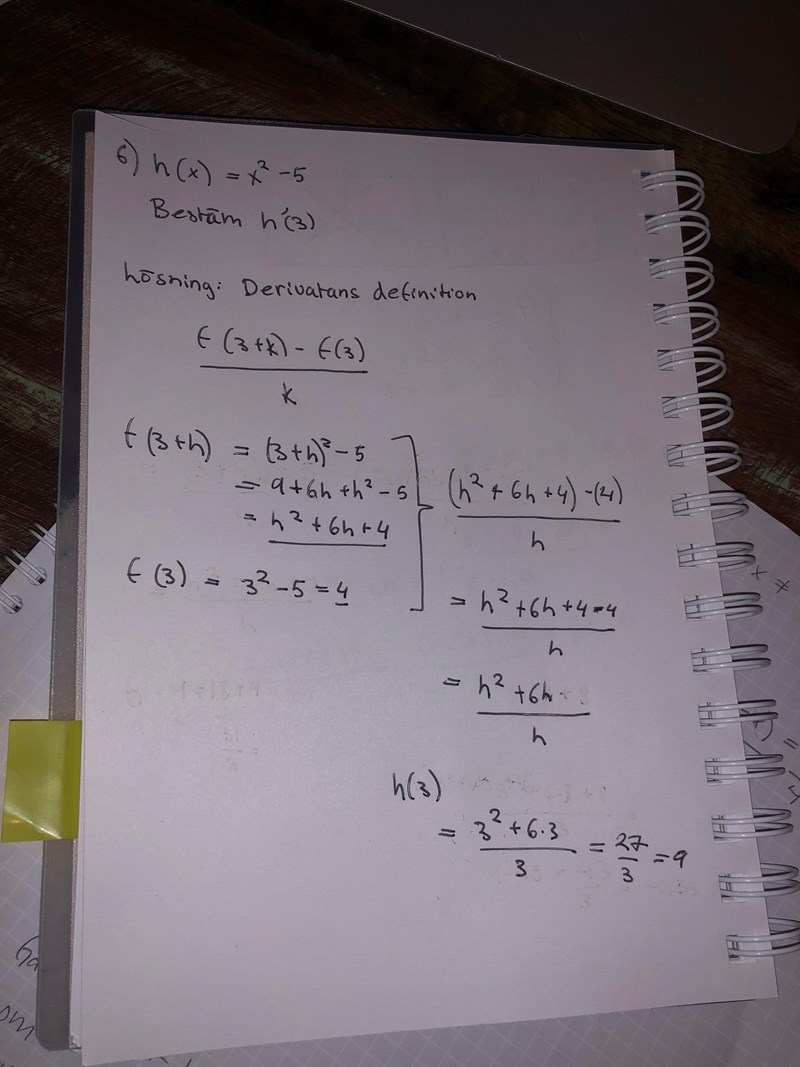 6) h(x) = x² - 5
Bestäm h'(3)
Lösning: Derivatans definition
f(3+k) - f(3)
k
f(3+h) = (3+h)² - 5
= 9+6h+h² - 5
= h² + 6h + 4
f(3) = 3² - 5 = 4
(h² + 6h + 4) - (4)
h
= h² + 6h + 4 - 4
h
= h² + 6h
h
h(3)
= 3² + 6·3
3
= 27
3
= 9